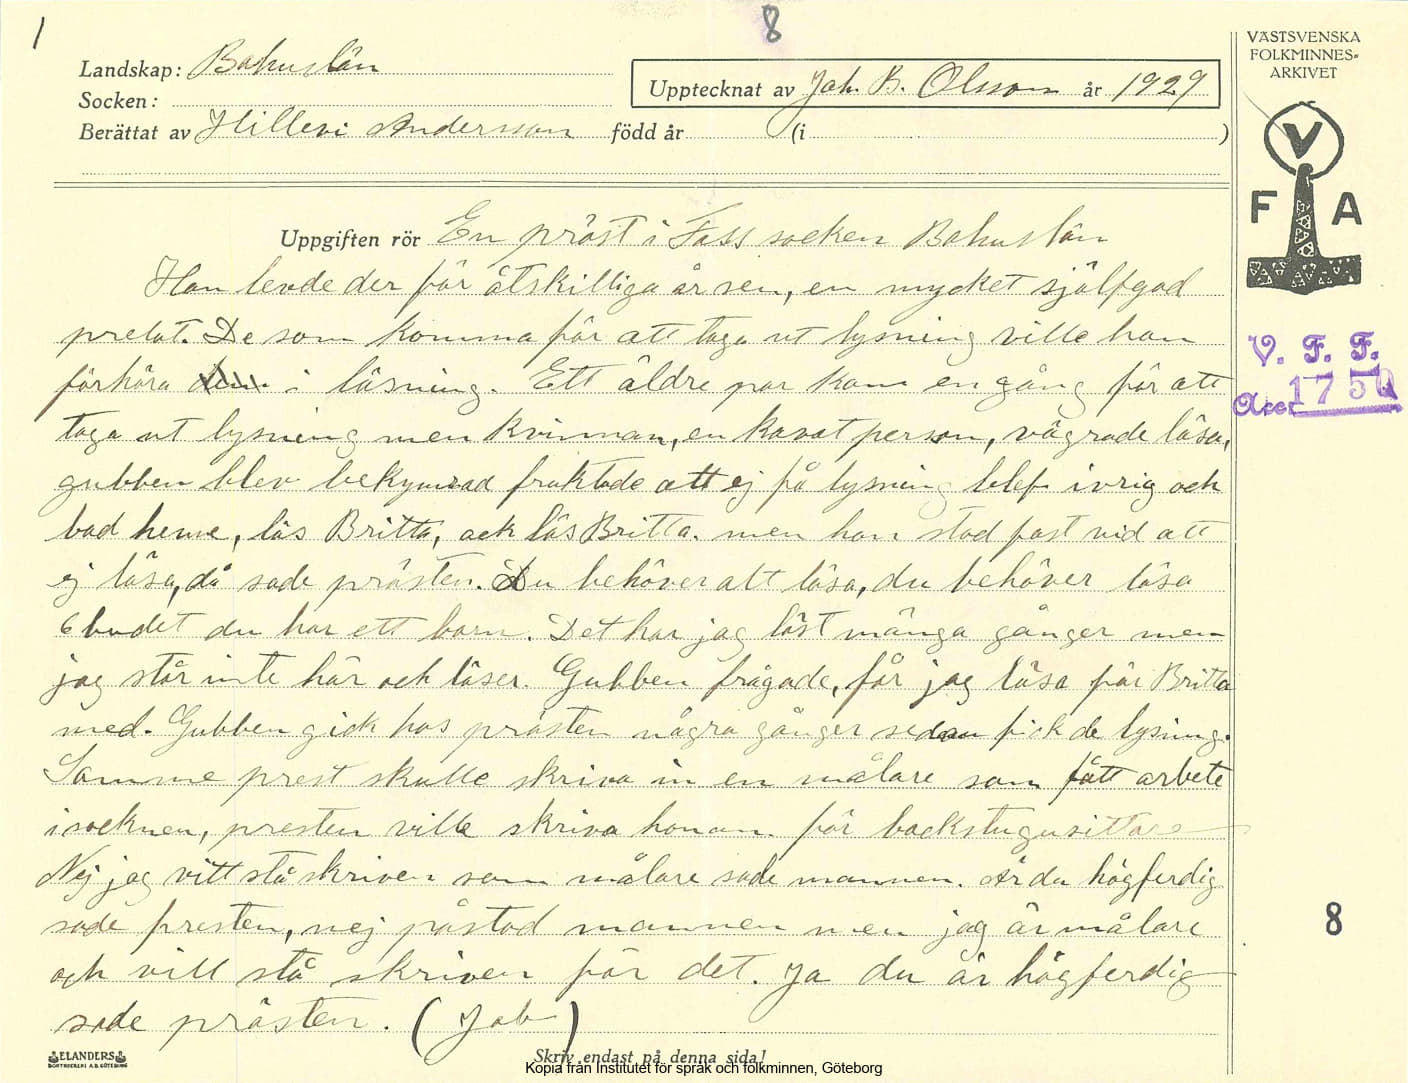 1
8
Landskap: Bohuslän
Socken:
Upptecknat av Joh. B. Olsson år 1929
Berättat av Hillevi Andersson född år (i )
VÄSTSVENSKA
FOLKMINNES-
ARKIVET
V
F A
Uppgiften rör En präst i Foss socken Bohuslän
Han levde der för åtskilliga år sen, en mycket själfgod
prelat. De som komma för att taga ut lysning ville han
förhöra i läsning. Ett äldre par kom en gång för att
taga ut lysning men kvinnan, en kavat person, vägrade läsa,
gubben blev bekymrad fruktade att ej få lysning blef ivrig och
bad henne, läs Britta, ack läs Britta. men hon stod fast vid att
ej läsa, då sade prästen. Du behöver att läsa, du behöver läsa
6 budet du har ett barn. Det har jag läst många gånger men
jag står inte här och läser. Gubben frågade, får jag läsa för Britta
med. Gubben gick hos prästen några gånger sedan fick de lysning.
Samme prest skulle skriva in en målare som fått arbete
i socknen, presten ville skriva honom för backstugusittare
Nej jag vill stå skriven som målare sade mannen. Är du högferdig
sade presten, nej påstod mannen men jag är målare
och vill stå skriven för det. Ja du är högferdig
sade prästen. (Job)
V. F. F.
Acc. 1750
8
ELANDERS
BOKTRYCKERI A.B. GÖTEBORG
Skriv endast på denna sida!
Kopia från Institutet för språk och folkminnen, Göteborg